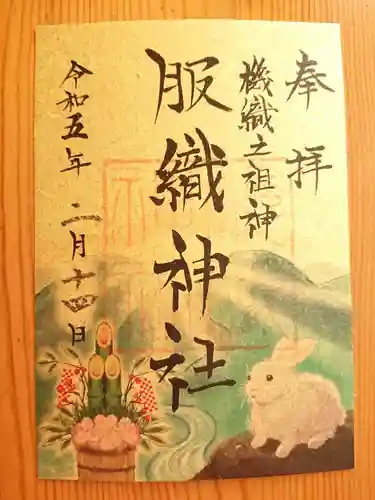 奉拝
機織之祖神
服織神社
令和五年 二月十四日